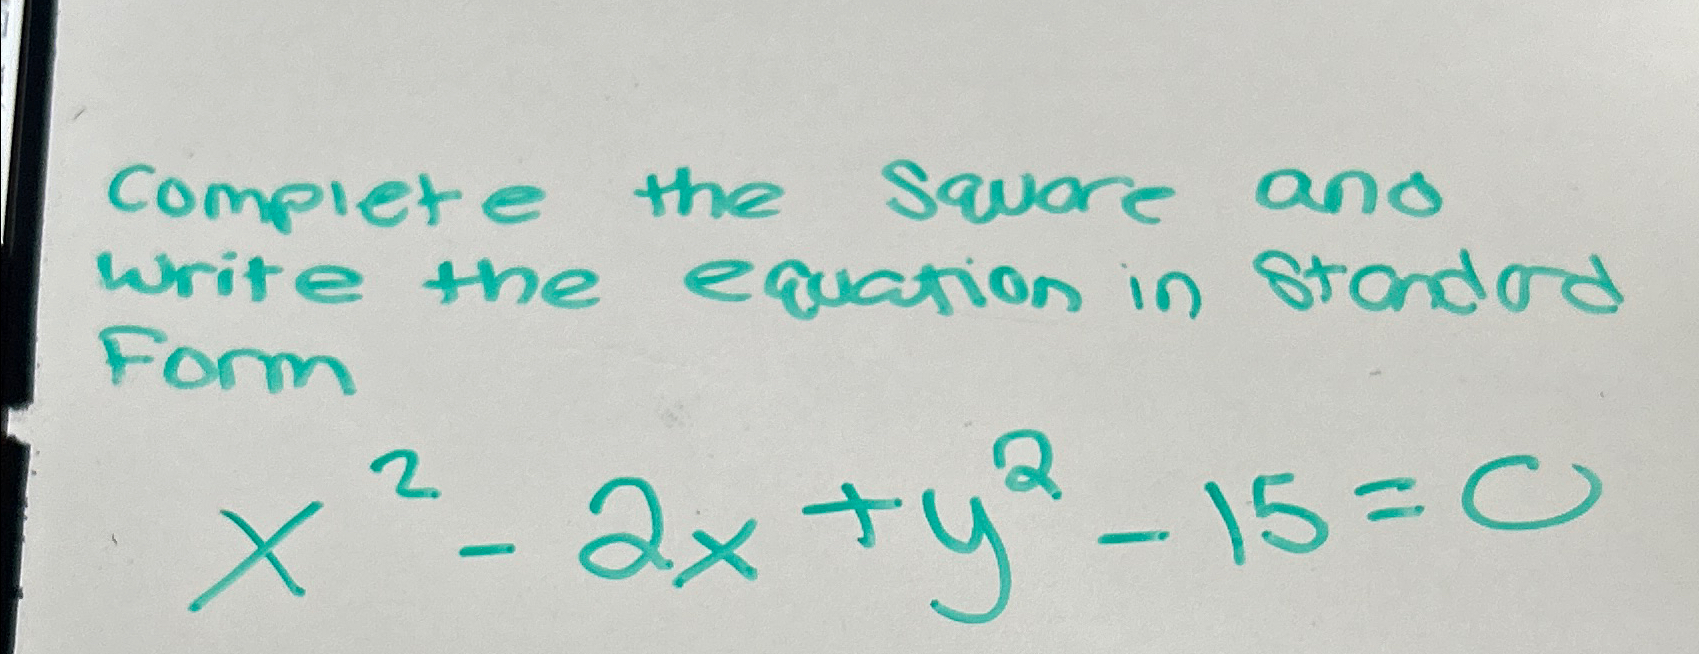 Complete the Square and
write the equation in Standard
Form
x² - 2x + y² - 15 = 0